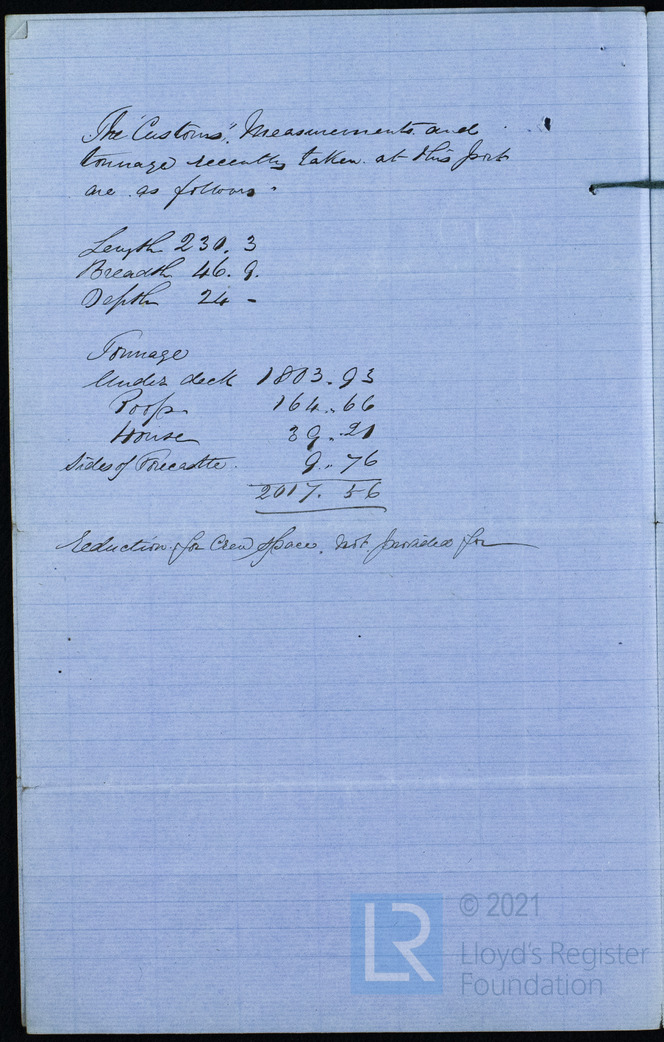 The "Customs" Measurements and
tonnage recently taken at this port
are as follows.
Length 230. 3
Breadth 46. 9.
Depth 24 -
Tonnage
Under deck 1803. 93
Poop 164. 66
House 39. 21
Sides of Forecastle. 9. 76
2017. 56
Reduction for Crew Space, not provided for
LR
© 2021
Lloyd's Register
Foundation